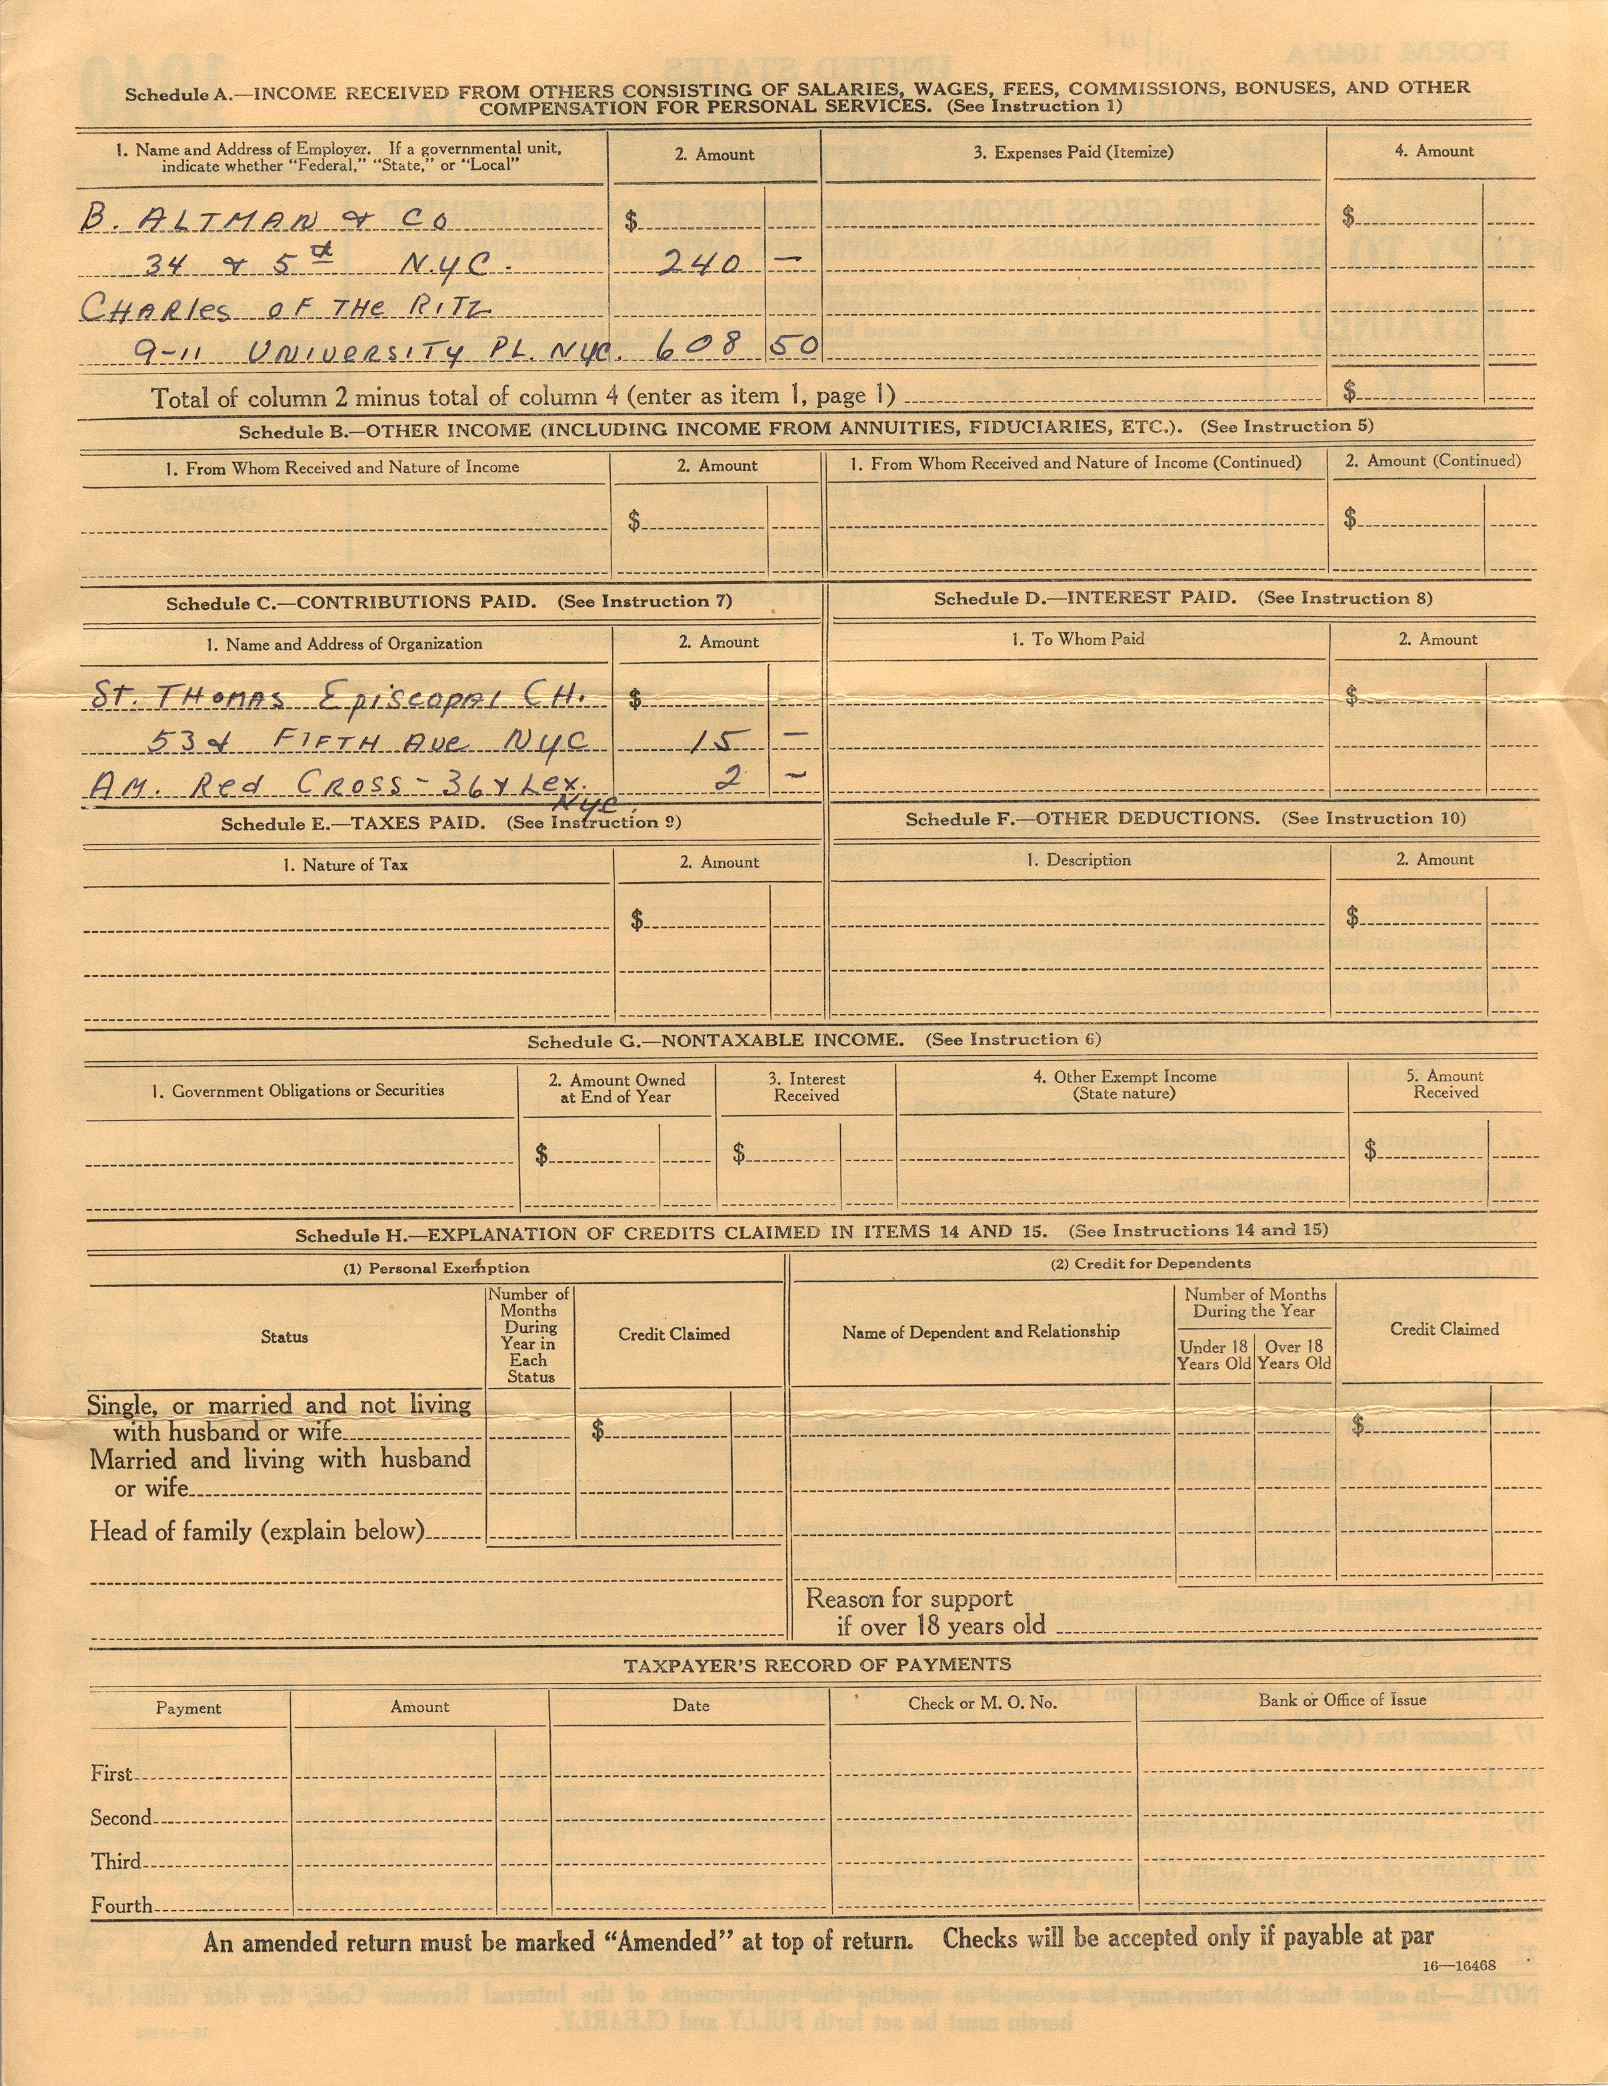 Schedule A.—INCOME RECEIVED FROM OTHERS CONSISTING OF SALARIES, WAGES, FEES, COMMISSIONS, BONUSES, AND OTHER
COMPENSATION FOR PERSONAL SERVICES. (See Instruction 1)
1. Name and Address of Employer. If a governmental unit,
indicate whether "Federal," "State," or "Local"
2. Amount
3. Expenses Paid (Itemize)
4. Amount
B. ALTMAN & CO $ $
34 & 5th N.Y.C. 240 —
CHARLES OF THE RITZ
9-11 UNIVERSITY PL. NYC. 608 50
Total of column 2 minus total of column 4 (enter as item 1, page 1) $
Schedule B.—OTHER INCOME (INCLUDING INCOME FROM ANNUITIES, FIDUCIARIES, ETC.). (See Instruction 5)
1. From Whom Received and Nature of Income
2. Amount
1. From Whom Received and Nature of Income (Continued)
2. Amount (Continued)
$ $
Schedule C.—CONTRIBUTIONS PAID. (See Instruction 7)
1. Name and Address of Organization
2. Amount
ST. THOMAS EPISCOPAL CH. $
53 & FIFTH AVE NYC 15 —
AM. Red CROSS - 36 & Lex. 2 —
NYC.
Schedule D.—INTEREST PAID. (See Instruction 8)
1. To Whom Paid
2. Amount
$
Schedule E.—TAXES PAID. (See Instruction 9)
1. Nature of Tax
2. Amount
$
Schedule F.—OTHER DEDUCTIONS. (See Instruction 10)
1. Description
2. Amount
$
Schedule G.—NONTAXABLE INCOME. (See Instruction 6)
1. Government Obligations or Securities
2. Amount Owned
at End of Year
3. Interest
Received
4. Other Exempt Income
(State nature)
5. Amount
Received
$ $ $
Schedule H.—EXPLANATION OF CREDITS CLAIMED IN ITEMS 14 AND 15. (See Instructions 14 and 15)
(1) Personal Exemption
Status
Number of
Months
During
Year in
Each
Status
Credit Claimed
Single, or married and not living
with husband or wife $
Married and living with husband
or wife
Head of family (explain below)
(2) Credit for Dependents
Name of Dependent and Relationship
Number of Months
During the Year
Under 18
Years Old
Over 18
Years Old
Credit Claimed
$
Reason for support
if over 18 years old
TAXPAYER'S RECORD OF PAYMENTS
Payment Amount Date Check or M. O. No. Bank or Office of Issue
First
Second
Third
Fourth
An amended return must be marked "Amended" at top of return. Checks will be accepted only if payable at par
16—16468